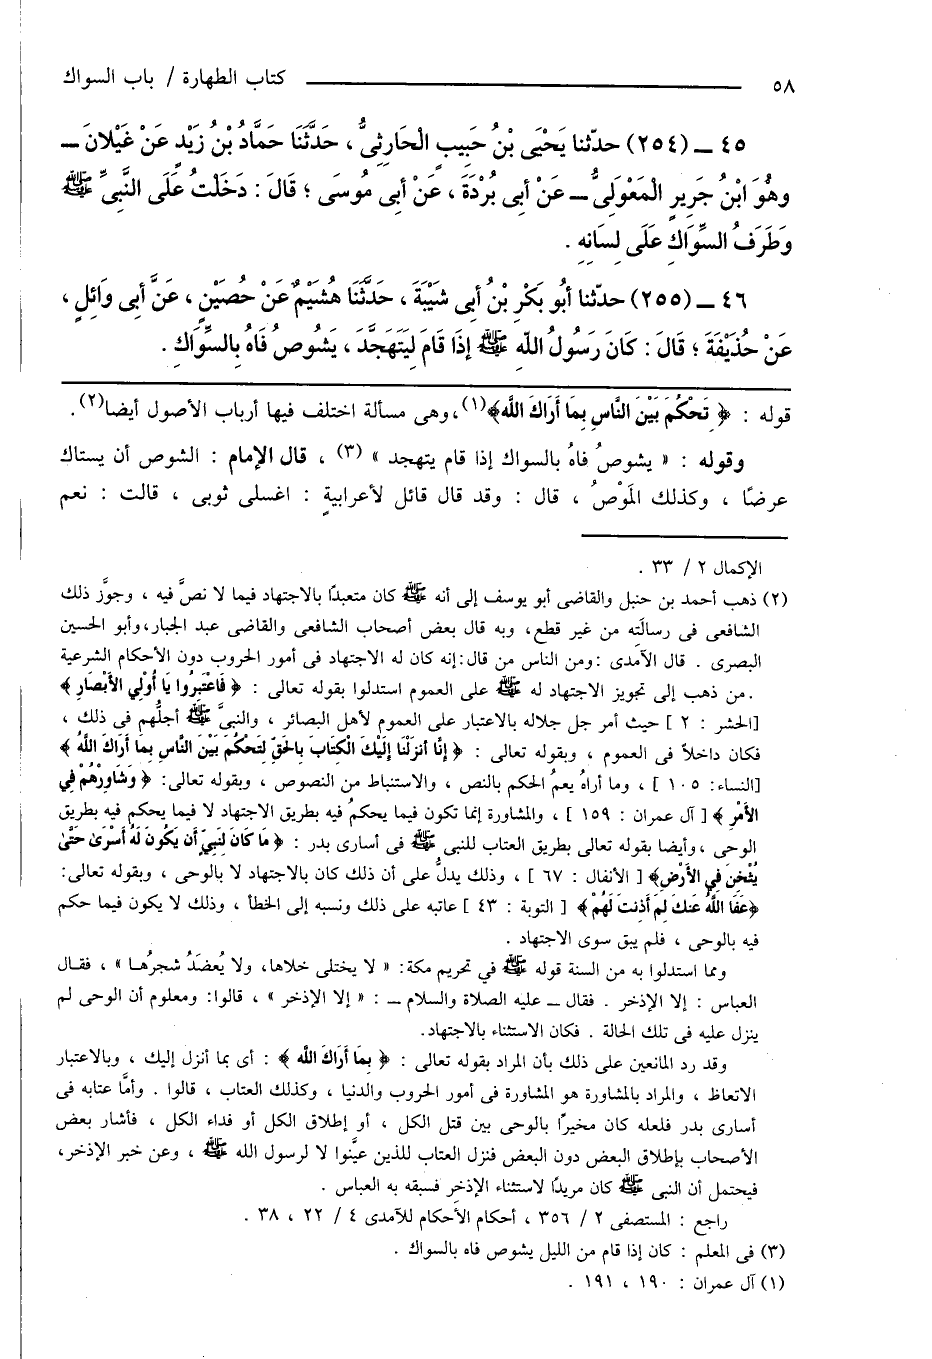 ٥٨ كتاب الطهارة / باب السواك
٤٥ ــ (٢٥٤) حدّثنا يَحْيَى بْنُ حَبِيبٍ الْحَارِثِىُّ ، حَدَّثَنَا حَمَّادُ بْنُ زَيْدٍ عَنْ غَيْلانَ ــ
وهُوَ ابْنُ جَرِيرٍ الْمَعْوَلِىُّ ــ عَنْ أبِى بُرْدَةَ ، عَنْ أبِى مُوسَى ؛ قَالَ : دَخَلْتُ عَلَى النَّبِىِّ ﷺ
وَطَرَفُ السِّوَاكِ عَلَى لِسَانِهِ .
٤٦ ــ (٢٥٥) حدّثنا أبُو بَكْرِ بْنُ أبِى شَيْبَةَ ، حَدَّثَنَا هُشَيْمٌ عَنْ حُصَيْنٍ ، عَنْ أبِى وَائِلٍ ،
عَنْ حُذَيْفَةَ ؛ قَالَ : كَانَ رَسُولُ اللهِ ﷺ إذَا قَامَ لِيَتَهَجَّدَ ، يَشُوصُ فَاهُ بِالسِّوَاكِ .
قوله : ﴿ تَحْكُمَ بَيْنَ النَّاسِ بِمَا أَرَاكَ اللَّه﴾(١) ،وهى مسألة اختلف فيها أرباب الأصول أيضا(٢) .
وقوله : « يشوصُ فاهُ بالسواك إذا قام يتهجد » (٣) ، قال الإمام : الشوص أن يستاك
عرضًا ، وكذلك المَوْصُ ، قال : وقد قال قائل لأعرابيةٍ : اغسلى ثوبى ، قالت : نعم
الإكمال ٢ / ٣٣ .
(٢) ذهب أحمد بن حنبل والقاضى أبو يوسف إلى أنه ﷺ كان متعبدًا بالاجتهاد فيما لا نصَّ فيه ، وجوَّز ذلك
الشافعى فى رسالته من غير قطع، وبه قال بعض أصحاب الشافعى والقاضى عبد الجبار،وأبو الحسين
البصرى . قال الآمدى :ومن الناس من قال:إنه كان له الاجتهاد فى أمور الحروب دون الأحكام الشرعية
.من ذهب إلى تجويز الاجتهاد له ﷺ على العموم استدلوا بقوله تعالى : ﴿ فَاعْتَبِرُوا يَا أُولِي الأَبْصَارِ ﴾
[الحشر : ٢ ] حيث أمر جل جلاله بالاعتبار على العموم لأهل البصائر ، والنبىُّ ﷺ أجلُّهم فى ذلك ،
فكان داخلاً فى العموم ، وبقوله تعالى : ﴿ إِنَّا أَنزَلْنَا إِلَيْكَ الْكِتَابَ بِالْحَقِّ لِتَحْكُمَ بَيْنَ النَّاسِ بِمَا أَرَاكَ اللَّهُ ﴾
[النساء: ١٠٥ ] ، وما أراهُ يعمُّ الحكم بالنص ، والاستنباط من النصوص ، وبقوله تعالى: ﴿ وَشَاوِرْهُمْ فِي
الأَمْرِ ﴾ [ آل عمران : ١٥٩ ] ، والمشاورة إنما تكون فيما يحكمُ فيه بطريق الاجتهاد لا فيما يحكم فيه بطريق
الوحى ،وأيضا بقوله تعالى بطريق العتاب للنبى ﷺ فى أسارى بدر : ﴿ مَا كَانَ لِنَبِيٍّ أَن يَكُونَ لَهُ أَسْرَىٰ حَتَّىٰ
يُثْخِنَ فِي الأَرْضِ﴾ [ الأنفال : ٦٧ ] ، وذلك يدلُّ على أن ذلك كان بالاجتهاد لا بالوحى ، وبقوله تعالى:
﴿عَفَا اللَّهُ عَنكَ لِمَ أَذِنتَ لَهُمْ ﴾ [ التوبة : ٤٣ ] عاتبه على ذلك ونسبه إلى الخطأ ، وذلك لا يكون فيما حكم
فيه بالوحى ، فلم يبق سوى الاجتهاد .
ومما استدلوا به من السنة قوله ﷺ في تحريم مكة: « لا يختلى خلاها، ولا يُعضَدُ شجرُهـا » ، فقـال
العباس : إلا الإذخر . فقال ــ عليه الصلاة والسلام ــ : « إلا الإذخر » ، قالوا: ومعلوم أن الوحى لم
ينزل عليه فى تلك الحالة . فكان الاستثناء بالاجتهاد.
وقد رد المانعين على ذلك بأن المراد بقوله تعالى : ﴿ بِمَا أَرَاكَ اللَّه ﴾ : أى بما أنزل إليك ، وبالاعتبار
الاتعاظ ، والمراد بالمشاورة هو المشاورة فى أمور الحروب والدنيا ، وكذلك العتاب ، قالوا . وأمَّا عتابه فى
أسارى بدر فلعله كان مخيرًا بالوحى بين قتل الكل ، أو إطلاق الكل أو فداء الكل ، فأشار بعض
الأصحاب بإطلاق البعض دون البعض فنزل العتاب للذين عيَّنوا لا لرسول الله ﷺ ، وعن خبر الإذخر،
فيحتمل أن النبى ﷺ كان مريدًا لاستثناء الإذخرِ فسبقه به العباس .
راجع : المستصفى ٢ / ٣٥٦ ، أحكام الأحكام للآمدى ٤ / ٢٢ ، ٣٨ .
(٣) فى المعلم : كان إذا قام من الليل يشوص فاه بالسواك .
(١) آل عمران : ١٩٠ ، ١٩١ .